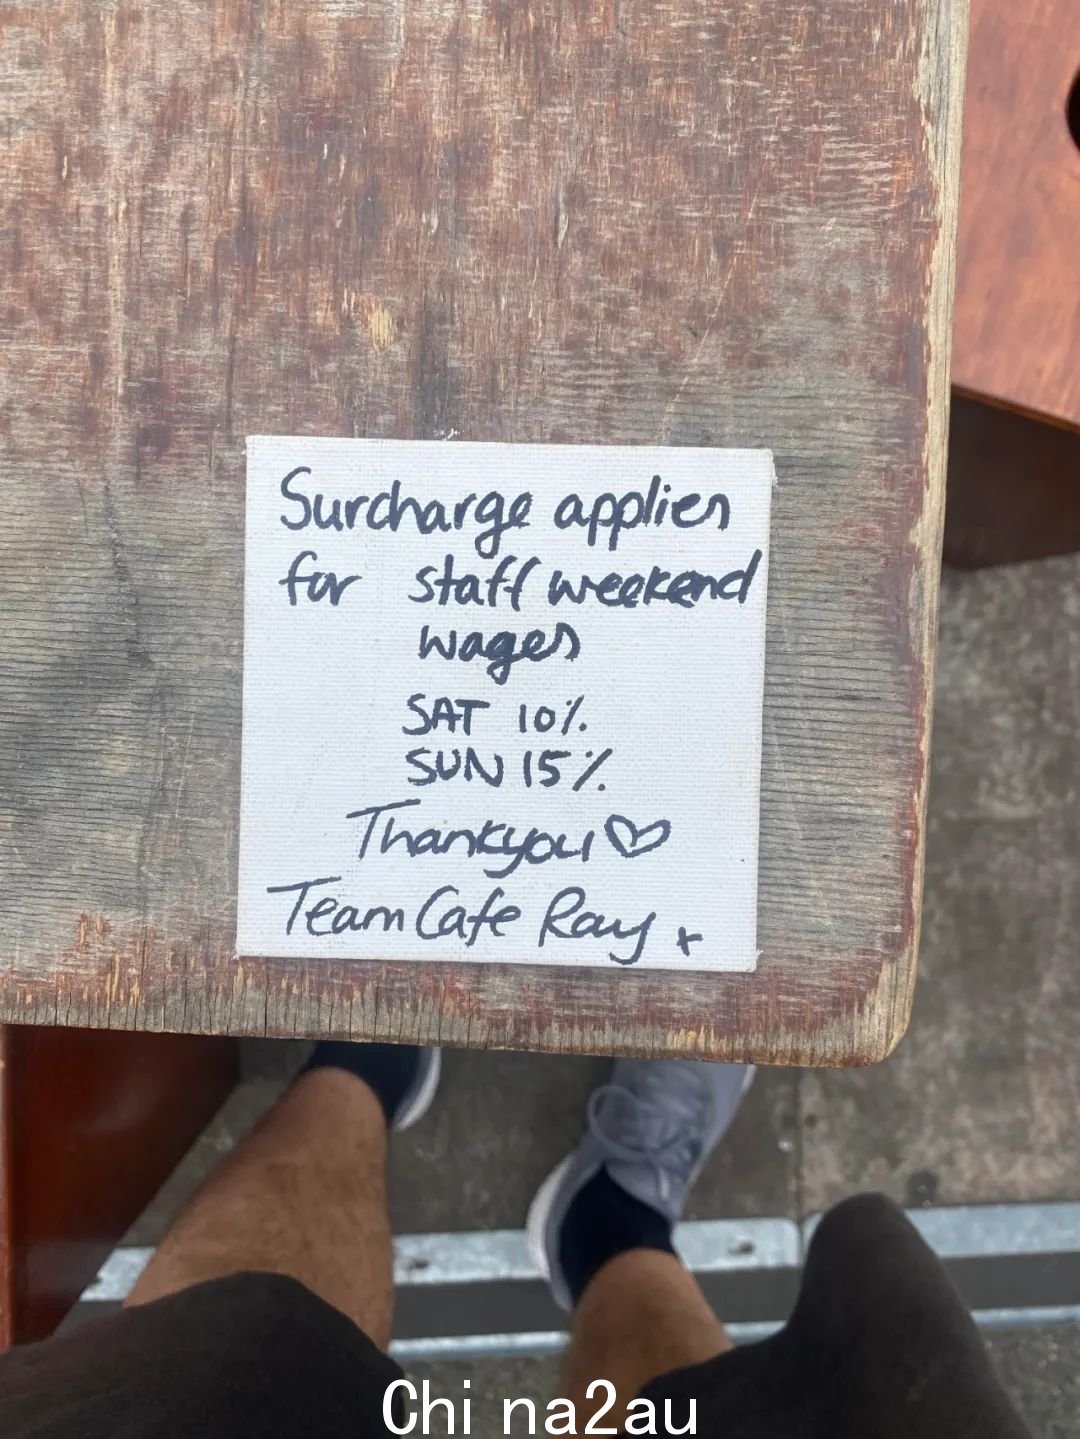 Surcharge applies
for staff weekend
wages
SAT 10%
SUN 15%
Thankyou♡
Team Cafe Ray x
China2au